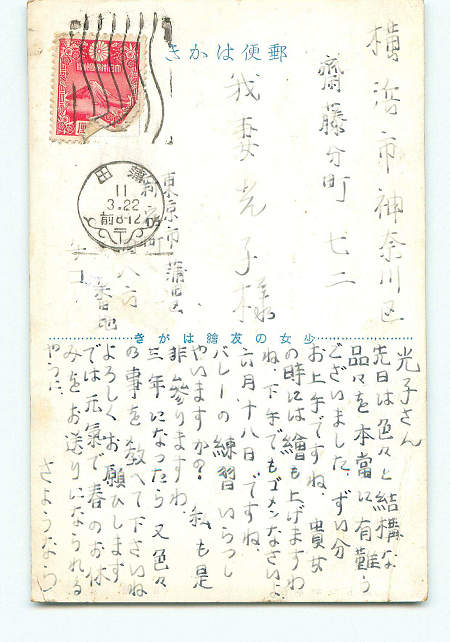 郵便はかき
横浜市神奈川区
齋藤分町七二
我妻光子様
蒲田
11
3.22
前8-12
東京市蒲田区
新宿町
八六
番地
少女の友繪はがき
光子さん
先日は色々と結構な
品々を本當に有難う
ございました。ずい分
お上手ですね 貴女
の時には繪も上げますわ
ね。下手でもゴメンなさいよ
六月十八日ですね。
バレーの練習いらっし
やいますか? 私も是
非參りますわ。
三年になったら又色々
の事を教へて下さいね
よろしくお願ひします
では元氣で春のお休
みをお送りになられる
やうに。
さようなら